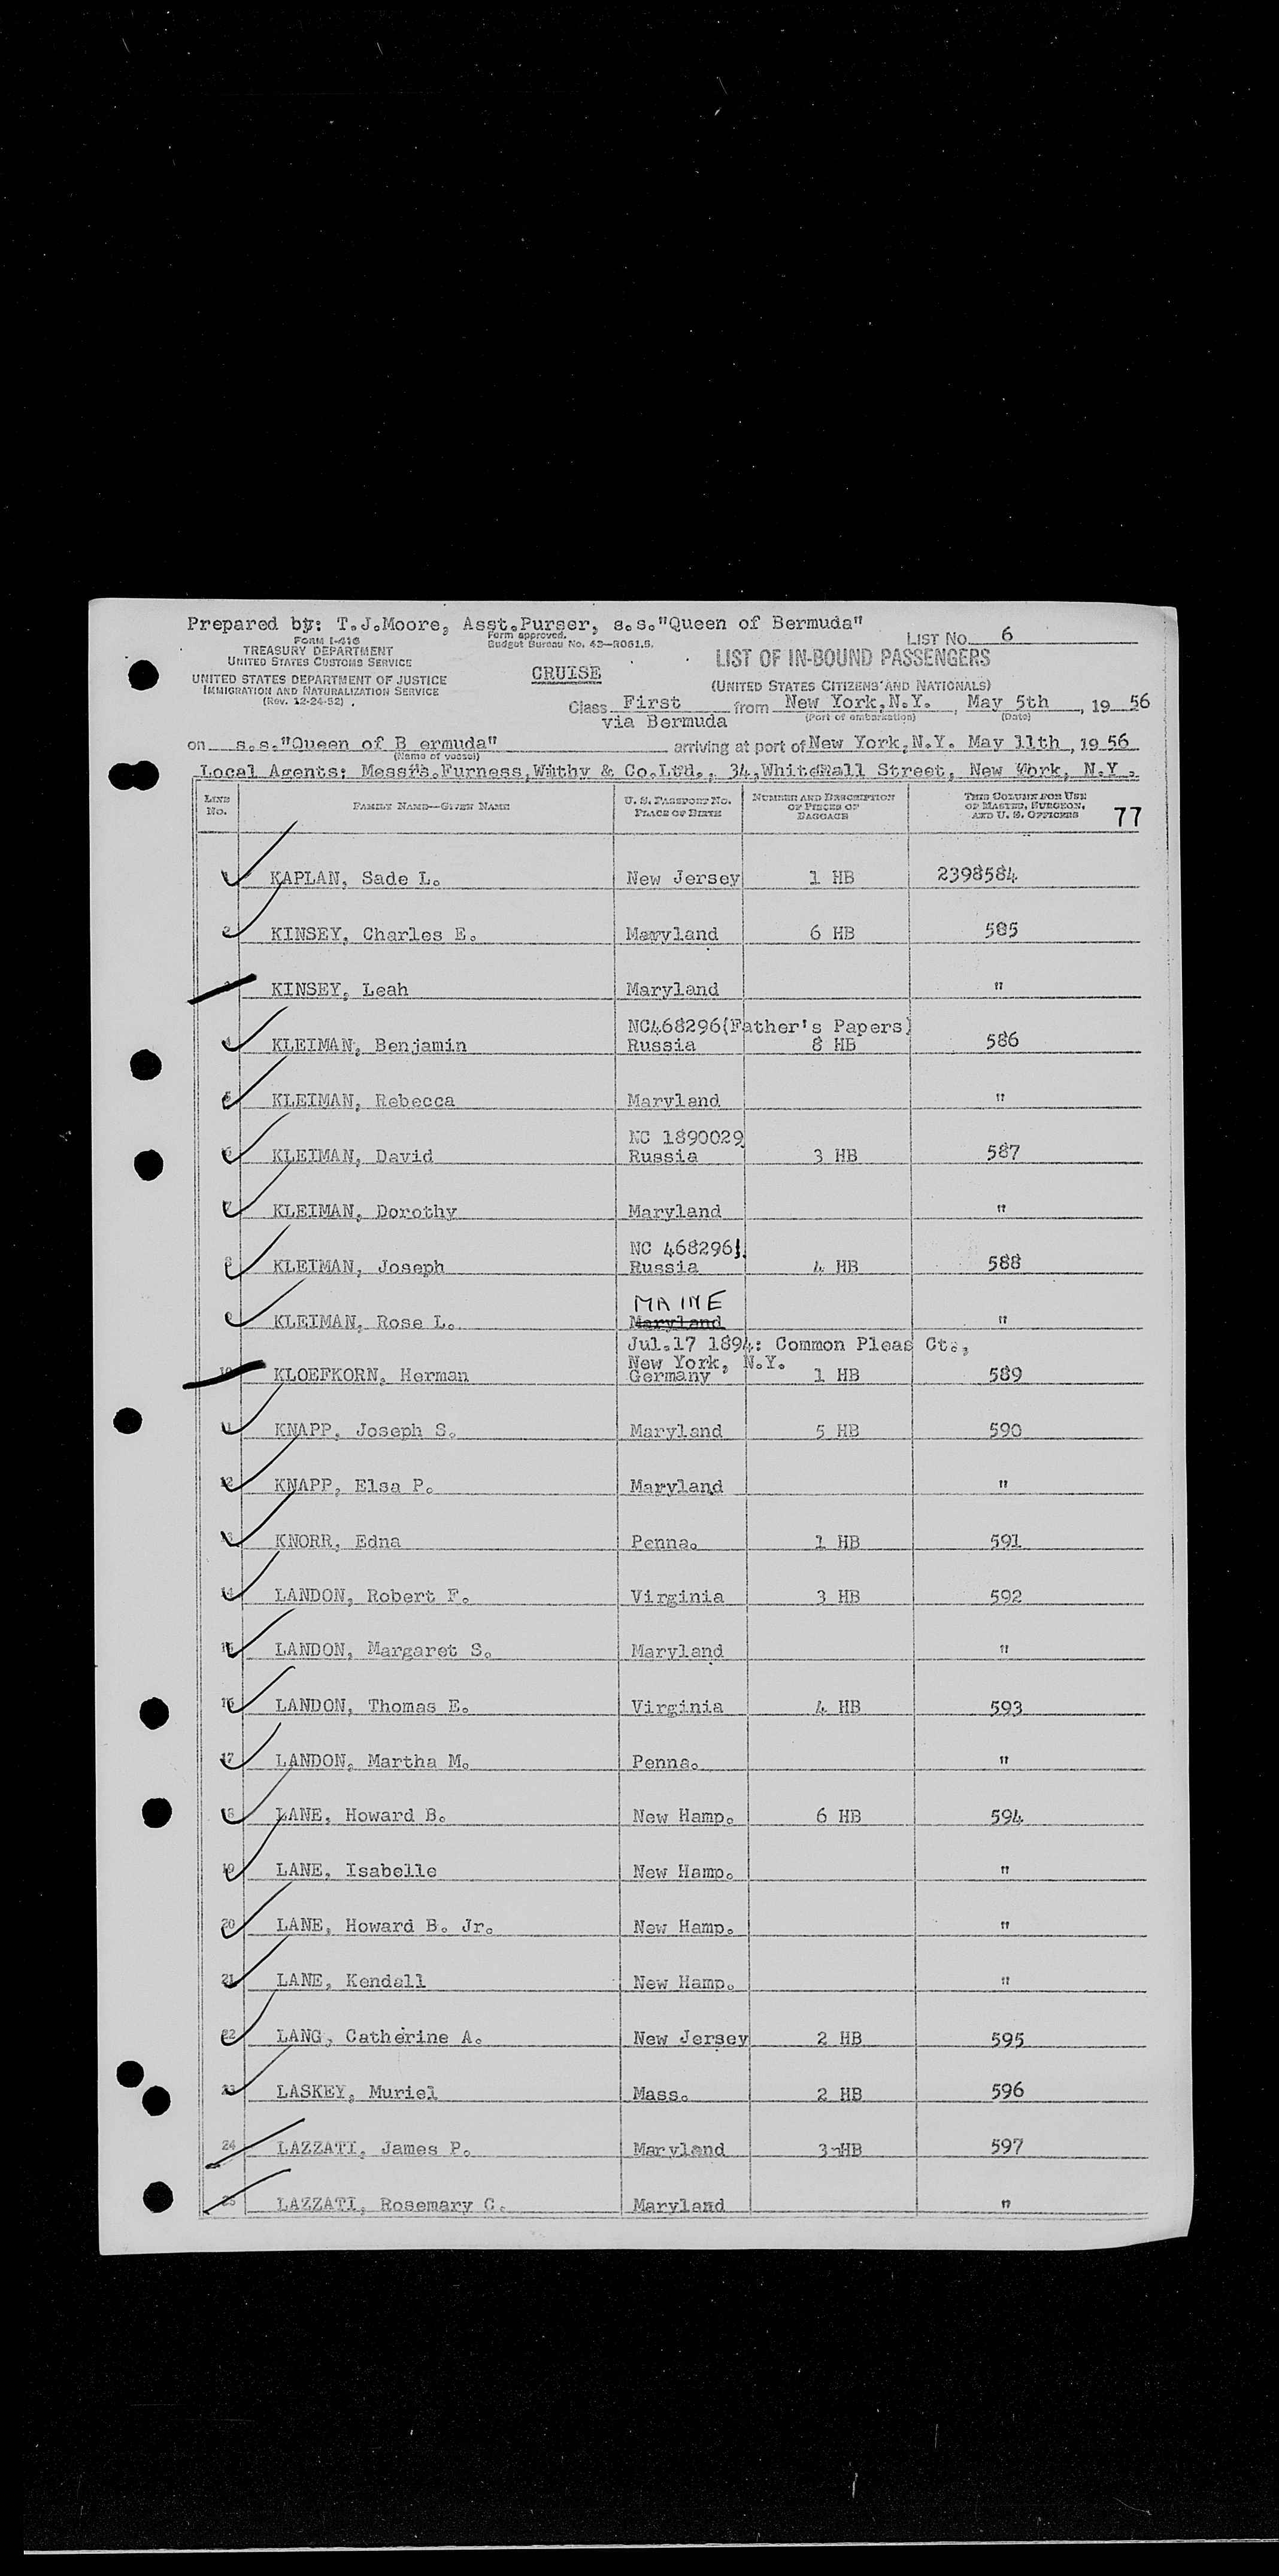 Prepared by: T.J.Moore, Asst.Purser, s.s."Queen of Bermuda"
FORM I-416
TREASURY DEPARTMENT
UNITED STATES CUSTOMS SERVICE
UNITED STATES DEPARTMENT OF JUSTICE
IMMIGRATION AND NATURALIZATION SERVICE
(Rev. 12-24-52)
Form approved.
Budget Bureau No. 43—R061.5.
CRUISE
LIST No. 6
LIST OF IN-BOUND PASSENGERS
(UNITED STATES CITIZENS AND NATIONALS)
Class First from New York, N.Y., May 5th, 19 56
via Bermuda (Port of embarkation) (Date)
on s.s."Queen of B ermuda" arriving at port of New York, N.Y. May 11th, 19 56
(Name of vessel)
Local Agents: Messrs.Furness,Withy & Co.Ltd., 34,Whitehall Street, New York, N.Y.
LINE No. FAMILY NAME—GIVEN NAME U. S. PASSPORT NO. PLACE OF BIRTH NUMBER AND DESCRIPTION OF PIECES OF BAGGAGE THIS COLUMN FOR USE OF MASTER, SURGEON, AND U. S. OFFICERS 77
1 KAPLAN, Sade L. New Jersey 1 HB 2398584
2 KINSEY, Charles E. Maryland 6 HB 585
3 KINSEY, Leah Maryland "
NC468296(Father's Papers)
4 KLEIMAN, Benjamin Russia 8 HB 586
5 KLEIMAN, Rebecca Maryland "
NC 1890029
6 KLEIMAN, David Russia 3 HB 587
7 KLEIMAN, Dorothy Maryland "
NC 468296
8 KLEIMAN, Joseph Russia 4 HB 588
MAINE
9 KLEIMAN, Rose L. Maryland "
Jul.17 1894: Common Pleas Ct.,
New York, N.Y.
10 KLOEFKORN, Herman Germany 1 HB 589
11 KNAPP, Joseph S. Maryland 5 HB 590
12 KNAPP, Elsa P. Maryland "
13 KNORR, Edna Penna. 1 HB 591
14 LANDON, Robert F. Virginia 3 HB 592
15 LANDON, Margaret S. Maryland "
16 LANDON, Thomas E. Virginia 4 HB 593
17 LANDON, Martha M. Penna. "
18 LANE, Howard B. New Hamp. 6 HB 594
19 LANE, Isabelle New Hamp. "
20 LANE, Howard B. Jr. New Hamp. "
21 LANE, Kendall New Hamp. "
22 LANG, Catherine A. New Jersey 2 HB 595
23 LASKEY, Muriel Mass. 2 HB 596
24 LAZZATI, James P. Maryland 3 HB 597
25 LAZZATI, Rosemary C. Maryland "